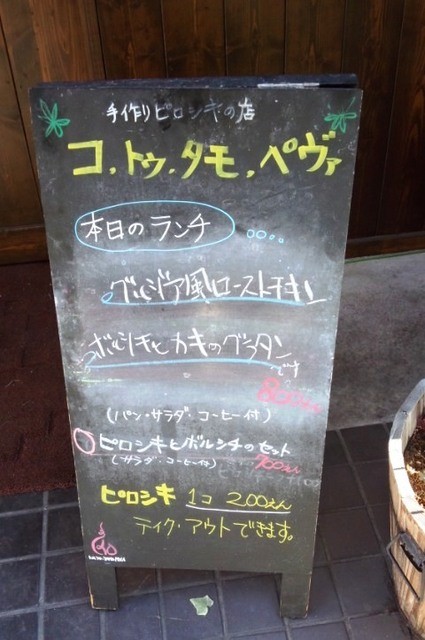 手作りピロシキの店
コ.トゥ.タモ.ペヴァ
本日のランチ
グルジア風ローストチキン
ボルシチとカキのグラタン
です
800えん
(パン・サラダ・コーヒー付)
ピロシキとボルシチのセット
(サラダ・コーヒー付) 700えん
ピロシキ 1コ 200えん
テイク・アウトできます。